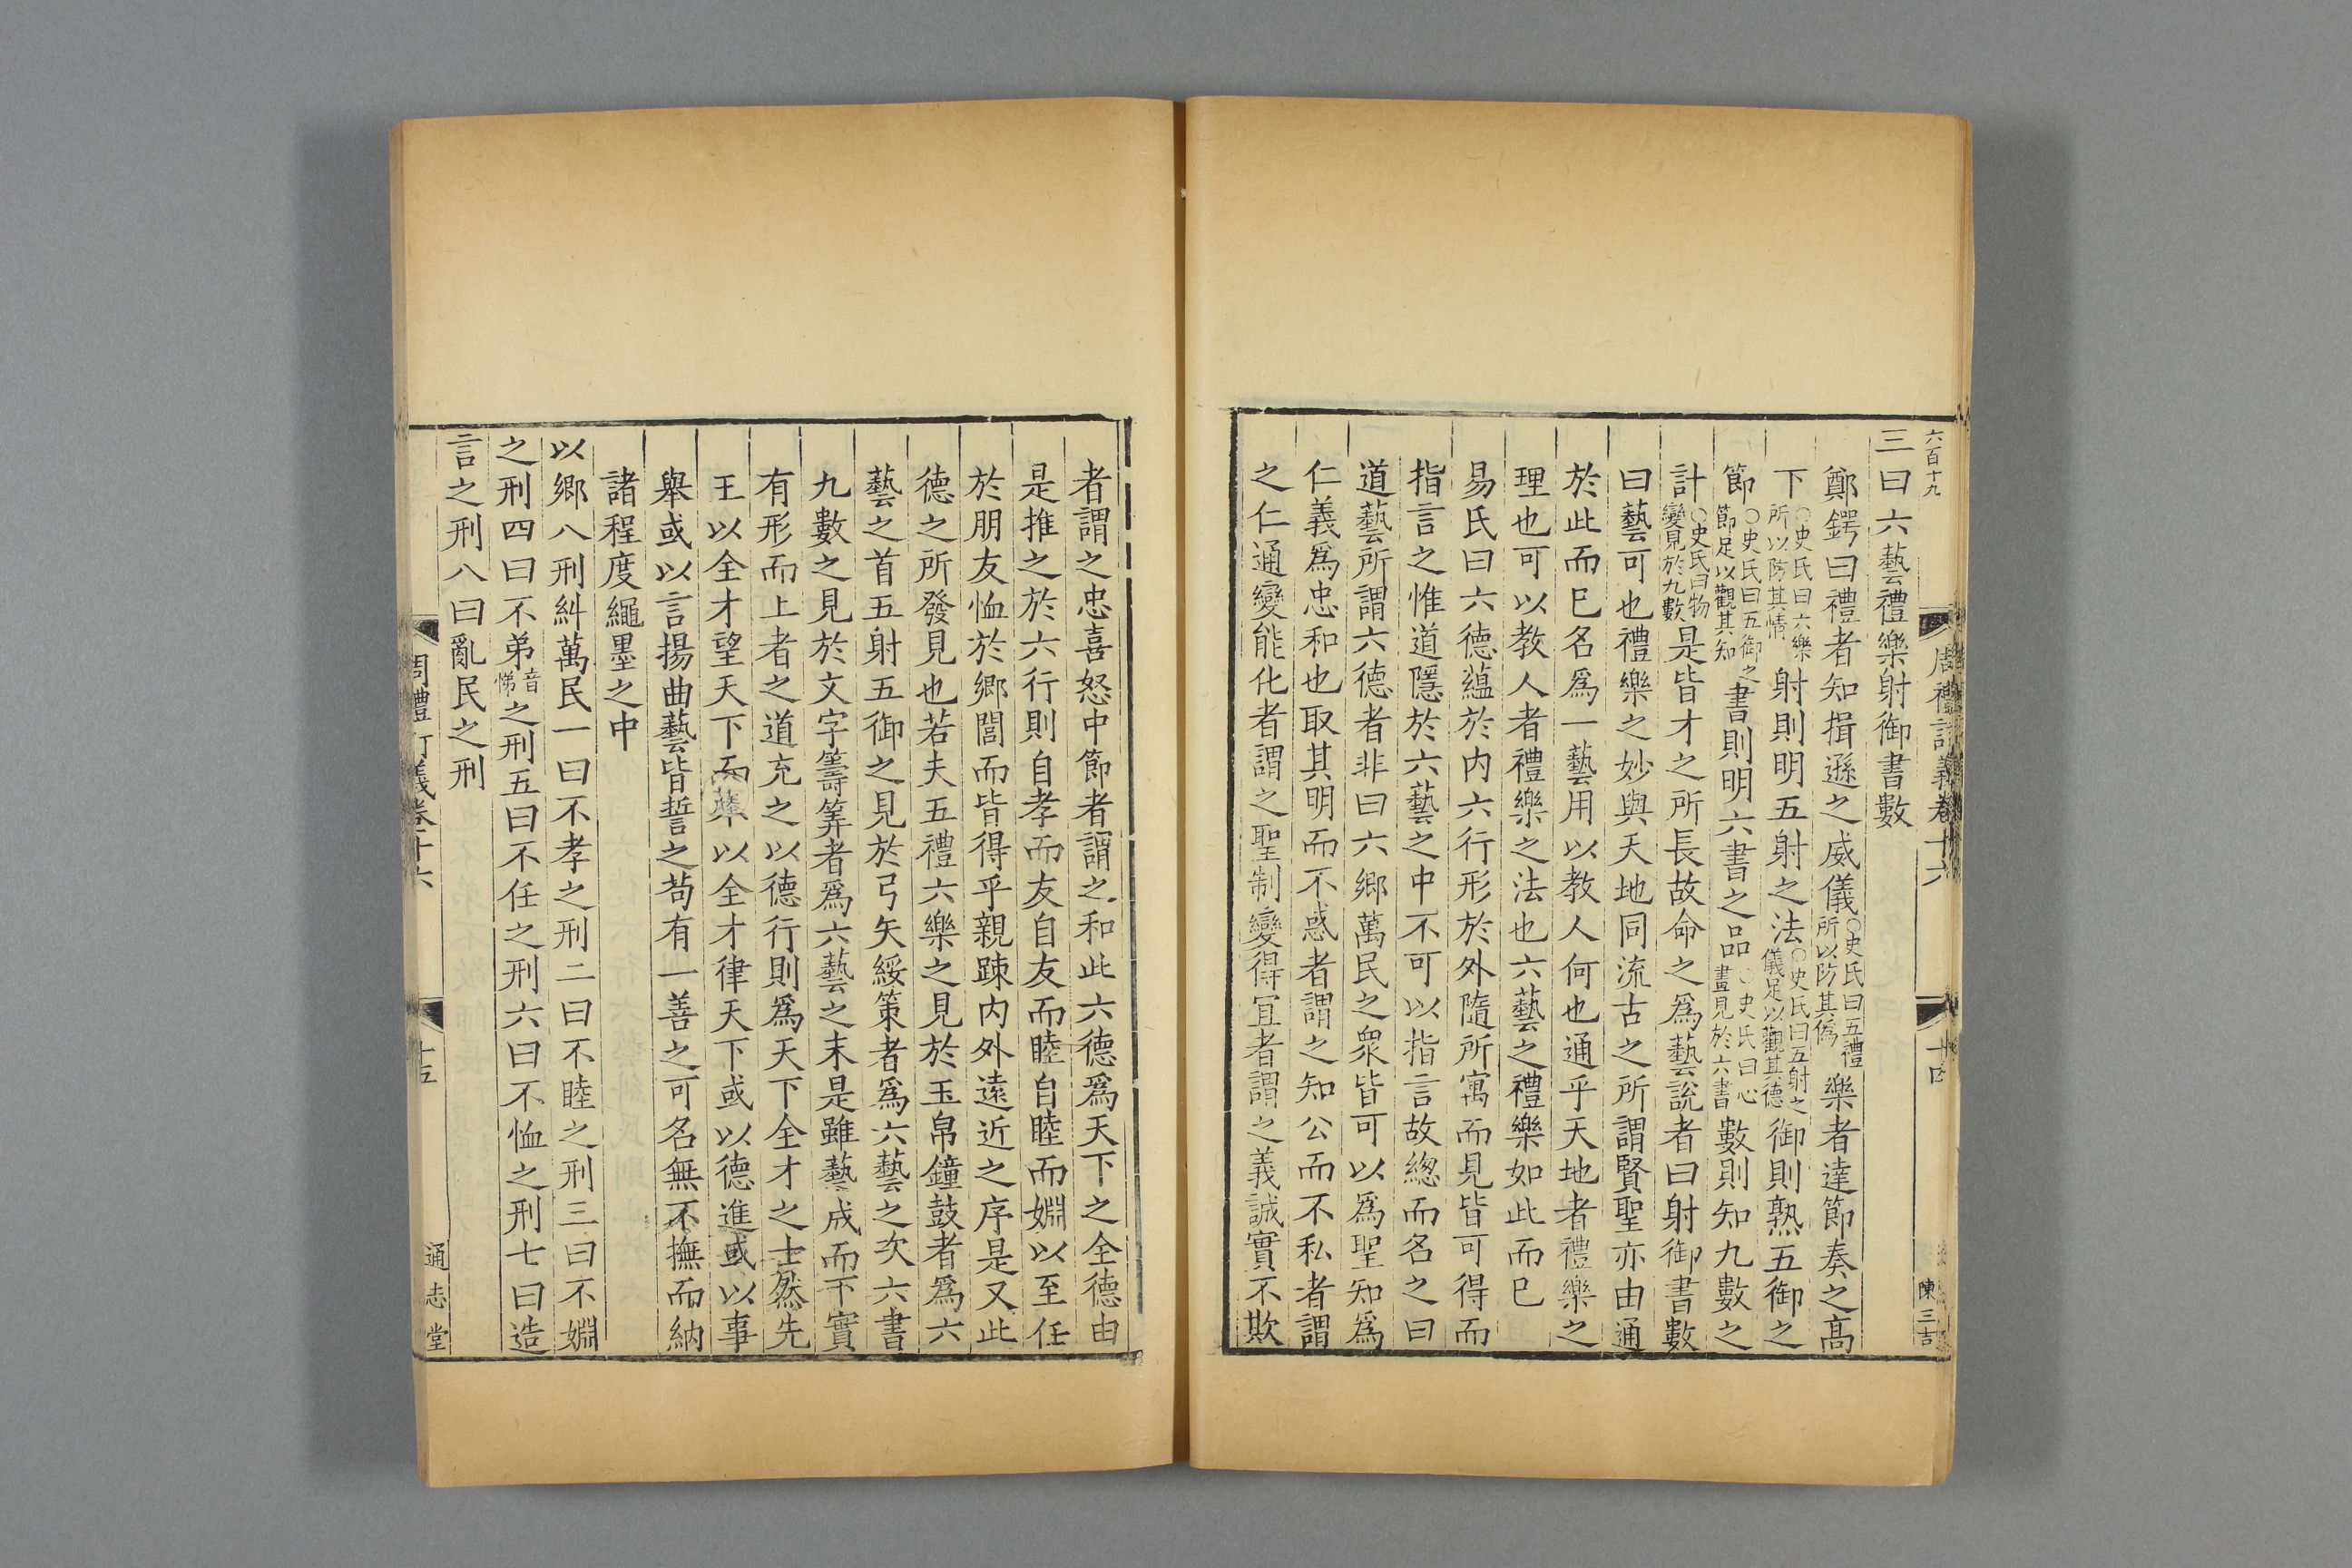 六百十九
周禮訂義卷十六
十四
陳三吉
三曰六藝禮樂射御書數
鄭鍔曰禮者知揖遜之威儀○史氏曰五禮所以防其僞樂者達節奏之高
下○史氏曰六樂所以防其情射則明五射之法○史氏曰五射之儀足以觀其德御則熟五御之
節○史氏曰五御之節足以觀其知書則明六書之品○史氏曰心畫見於六書數則知九數之
計○史氏曰物變見於九數是皆才之所長故命之爲藝說者曰射御書數
曰藝可也禮樂之妙與天地同流古之所謂賢聖亦由通
於此而已名爲一藝用以教人何也通乎天地者禮樂之
理也可以教人者禮樂之法也六藝之禮樂如此而已
易氏曰六德蘊於内六行形於外隨所寓而見皆可得而
指言之惟道隱於六藝之中不可以指言故緫而名之曰
道藝所謂六德者非曰六鄉萬民之衆皆可以爲聖知爲
仁義爲忠和也取其明而不惑者謂之知公而不私者謂
之仁通變能化者謂之聖制變得宜者謂之義誠實不欺
者謂之忠喜怒中節者謂之和此六德爲天下之全德由
是推之於六行則自孝而友自友而睦自睦而婣以至任
於朋友恤於鄉閭而皆得乎親踈内外遠近之序是又此
德之所發見也若夫五禮六樂之見於玉帛鐘鼓者爲六
藝之首五射五御之見於弓矢綏策者爲六藝之次六書
九數之見於文字籌筭者爲六藝之末是雖藝成而下實
有形而上者之道充之以德行則爲天下全才之士然先
王以全才望天下而不以全才律天下或以德進或以事
舉或以言揚曲藝皆誓之苟有一善之可名無不撫而納
諸程度繩墨之中
以鄉八刑糾萬民一曰不孝之刑二曰不睦之刑三曰不婣
之刑四曰不弟音悌之刑五曰不任之刑六曰不恤之刑七曰造
言之刑八曰亂民之刑
周禮訂義卷十六
十五
通志堂